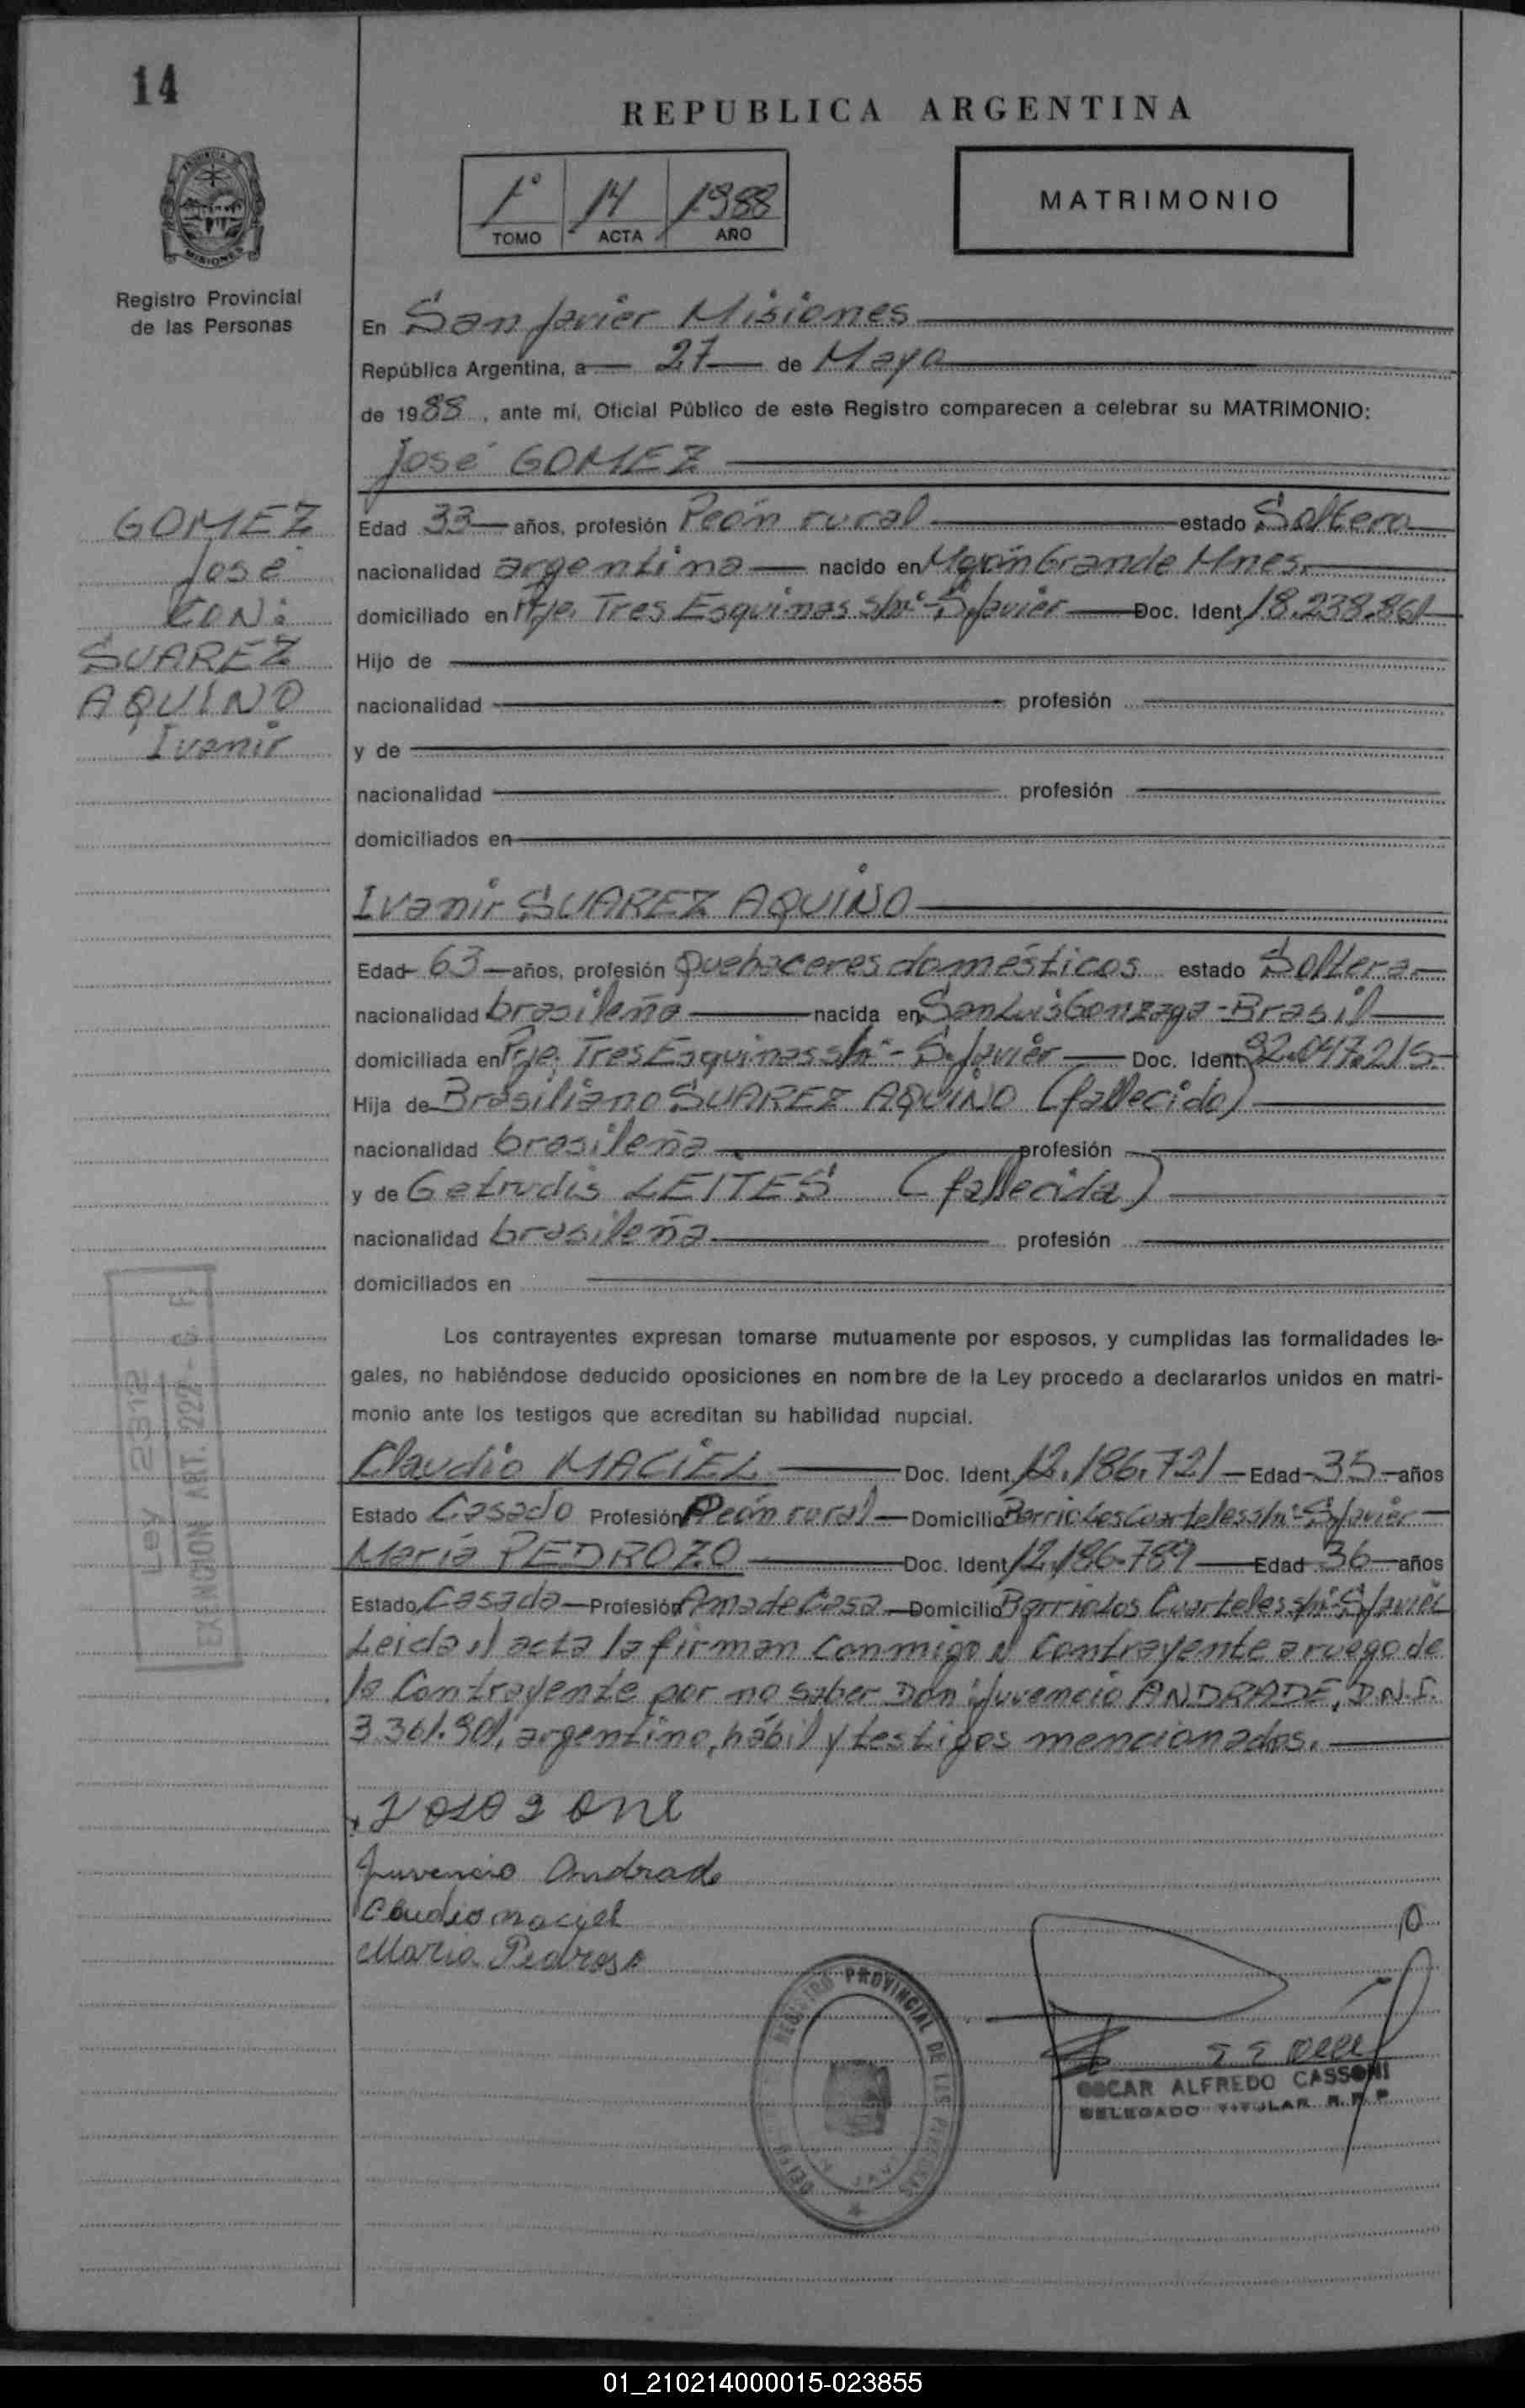 14
REPUBLICA ARGENTINA
1° 14 1988
TOMO ACTA AÑO
MATRIMONIO
PROVINCIA DE
MISIONES
Registro Provincial
de las Personas
En San Javier Misiones
República Argentina, a 27 de Mayo
de 1988, ante mí, Oficial Público de este Registro comparecen a celebrar su MATRIMONIO:
José GOMEZ
GOMEZ
José
CON:
SUAREZ
AQUINO
Ivanir
Edad 33 años, profesión Peón rural estado Soltero
nacionalidad argentina nacido en Mojón Grande Mnes.
domiciliado en Pje. Tres Esquinas s/n°-S.Javier Doc. Ident. 18.238.861
Hijo de
nacionalidad profesión
y de
nacionalidad profesión
domiciliados en
Ivanir SUAREZ AQUINO
Edad 63 años, profesión Quehaceres domésticos estado Soltera
nacionalidad brasileña nacida en San Luis Gonzaga-Brasil
domiciliada en Pje. Tres Esquinas s/n°-S.Javier Doc. Ident. 92.047.215
Hija de Brasiliano SUAREZ AQUINO (fallecido)
nacionalidad brasileña profesión
y de Getrudis LEITES (fallecida)
nacionalidad brasileña profesión
domiciliados en
Los contrayentes expresan tomarse mutuamente por esposos, y cumplidas las formalidades le-
gales, no habiéndose deducido oposiciones en nombre de la Ley procedo a declararlos unidos en matri-
monio ante los testigos que acreditan su habilidad nupcial.
Claudio MACIEL Doc. Ident. 12.186.721 Edad 35 años
Estado Casado Profesión Peón rural Domicilio Barrio Los Cuarteles s/n°-S.Javier
María PEDROZO Doc. Ident. 12.186.789 Edad 36 años
Estado Casada Profesión Ama de Casa Domicilio Barrio Los Cuarteles s/n°-S.Javier
Leida el acta la firman conmigo el contrayente a ruego de
la Contrayente por no saber Don Juvencio ANDRADE, D.N.I.
3.361.901, argentino, hábil y testigos mencionados.
Ley 2312
EXENCION ART. 222 - C. F.
Juvencio Andrade
Claudio maciel
Maria Pedroso
REGISTRO PROVINCIAL DE LAS PERSONAS
OSCAR ALFREDO CASSONI
DELEGADO TITULAR R. P. P.
01_210214000015-023855